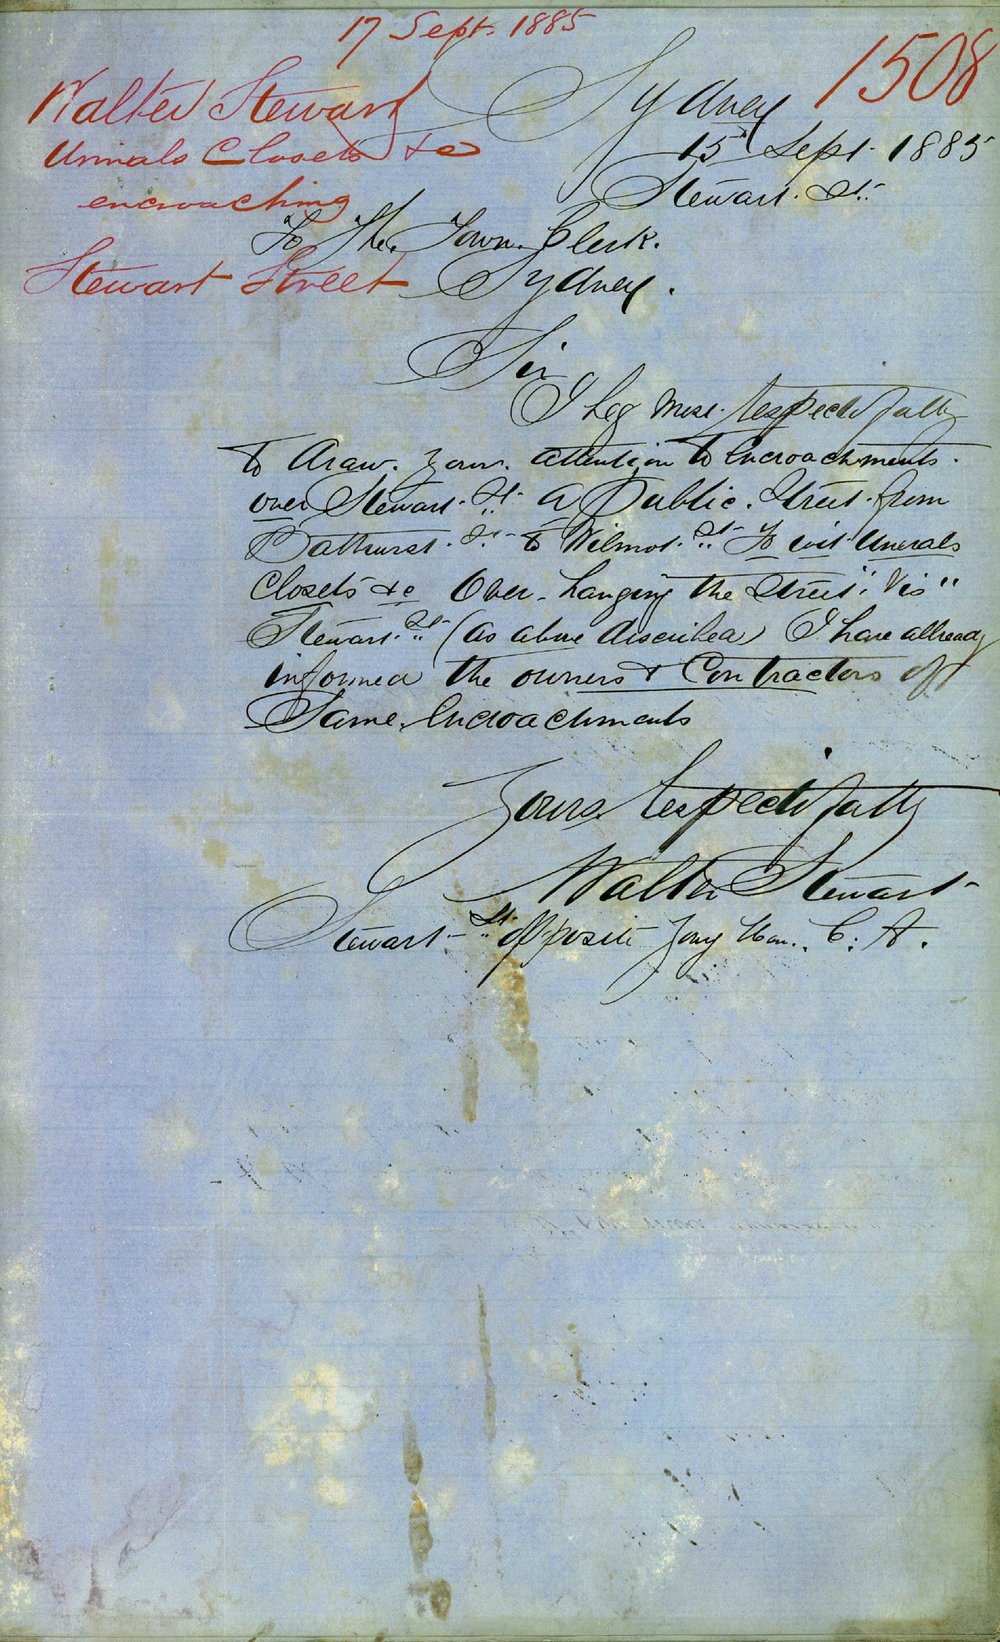 17 Sept. 1885
1508
Walter Stewart
Urinals Closets &c
encroaching
Stewart Street
Sydney
15th Sept. 1885
Stewart. St.
To The. Town. Clerk.
Sydney.
Sir
I beg most. respectfully
to draw. your. attention to Encroachments.
over Stewart. St. a Public. Street. from
Bathurst. St. to Wilmot. St. To wit "Unerals
Closets &c Over-hanging the Street". "Vis"
Stewart. St. (as above described) I have allready
informed the owners & Contractors of
Same. Encroachments
Yours. respectfully
Walter Stewart
Stewart St. opposite C. A.